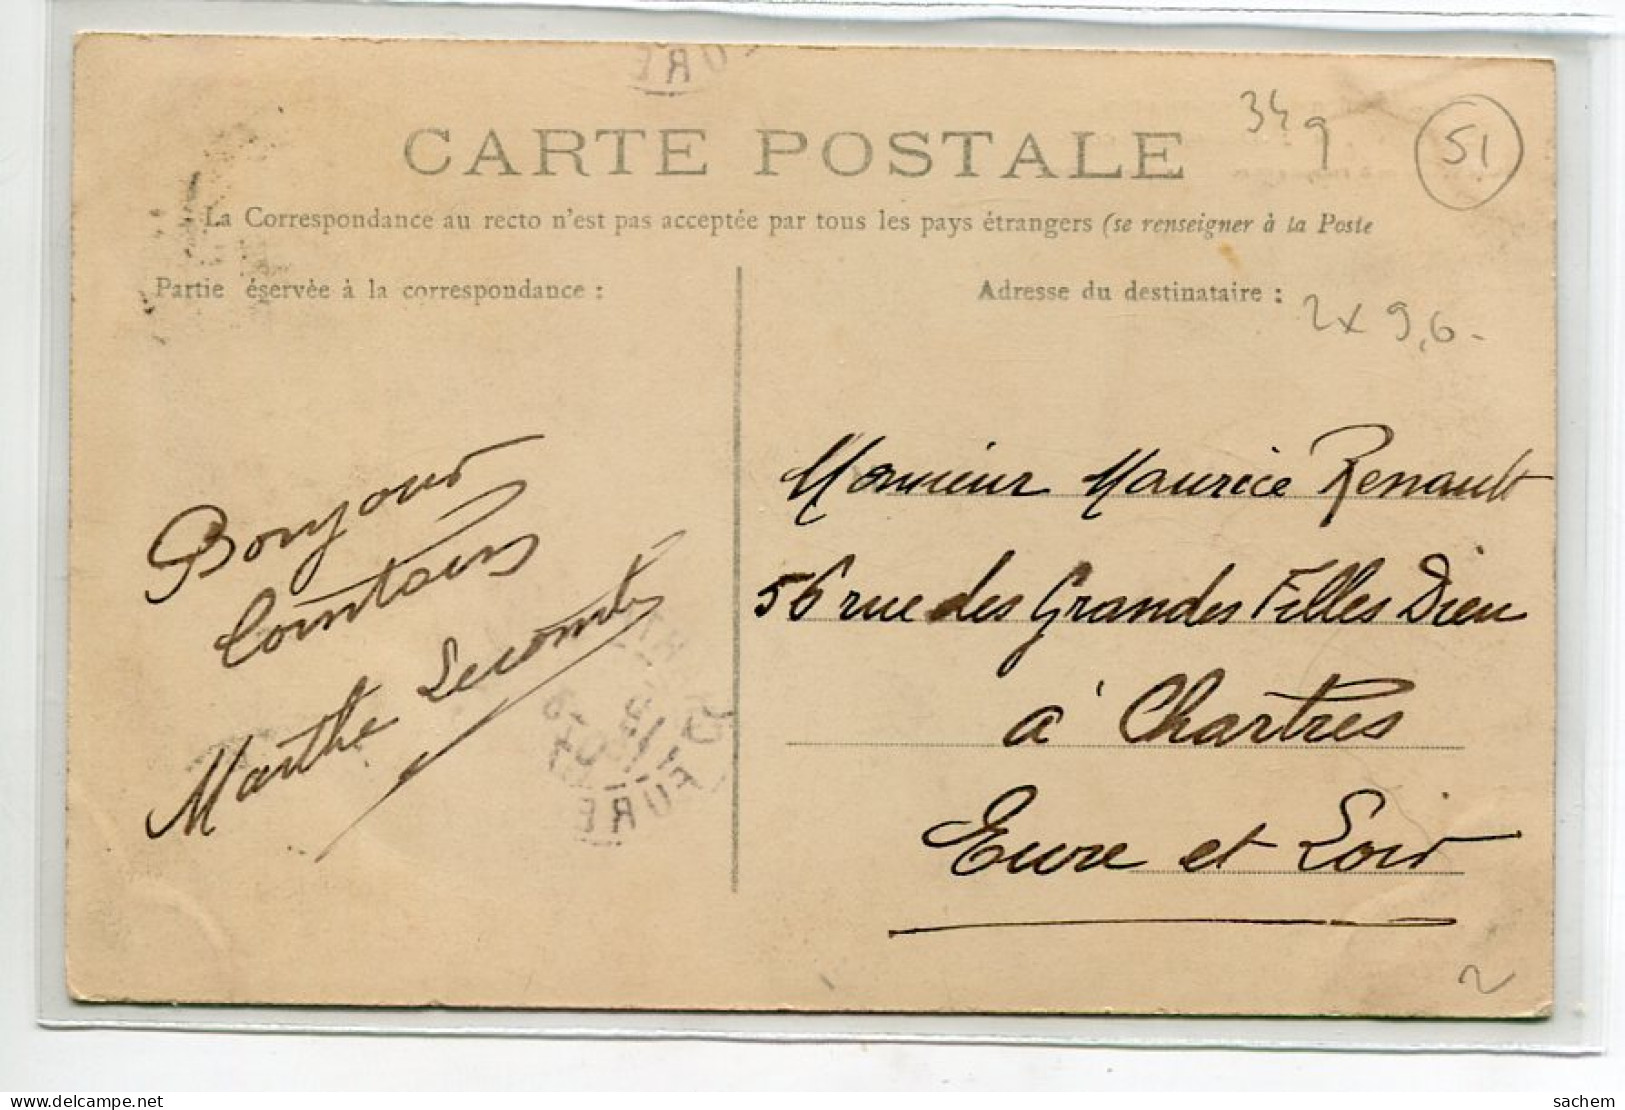 CARTE POSTALE
34 9
51
La Correspondance au recto n'est pas acceptée par tous les pays étrangers (se renseigner à la Poste
Partie éservée à la correspondance :
Adresse du destinataire :
2x 9,6-
Bonjour
Lointain
Marthe Lecomte
Monsieur Maurice Renault
56 rue des Grandes Filles Dieu
à Chartres
Eure et Loir
2
sachem